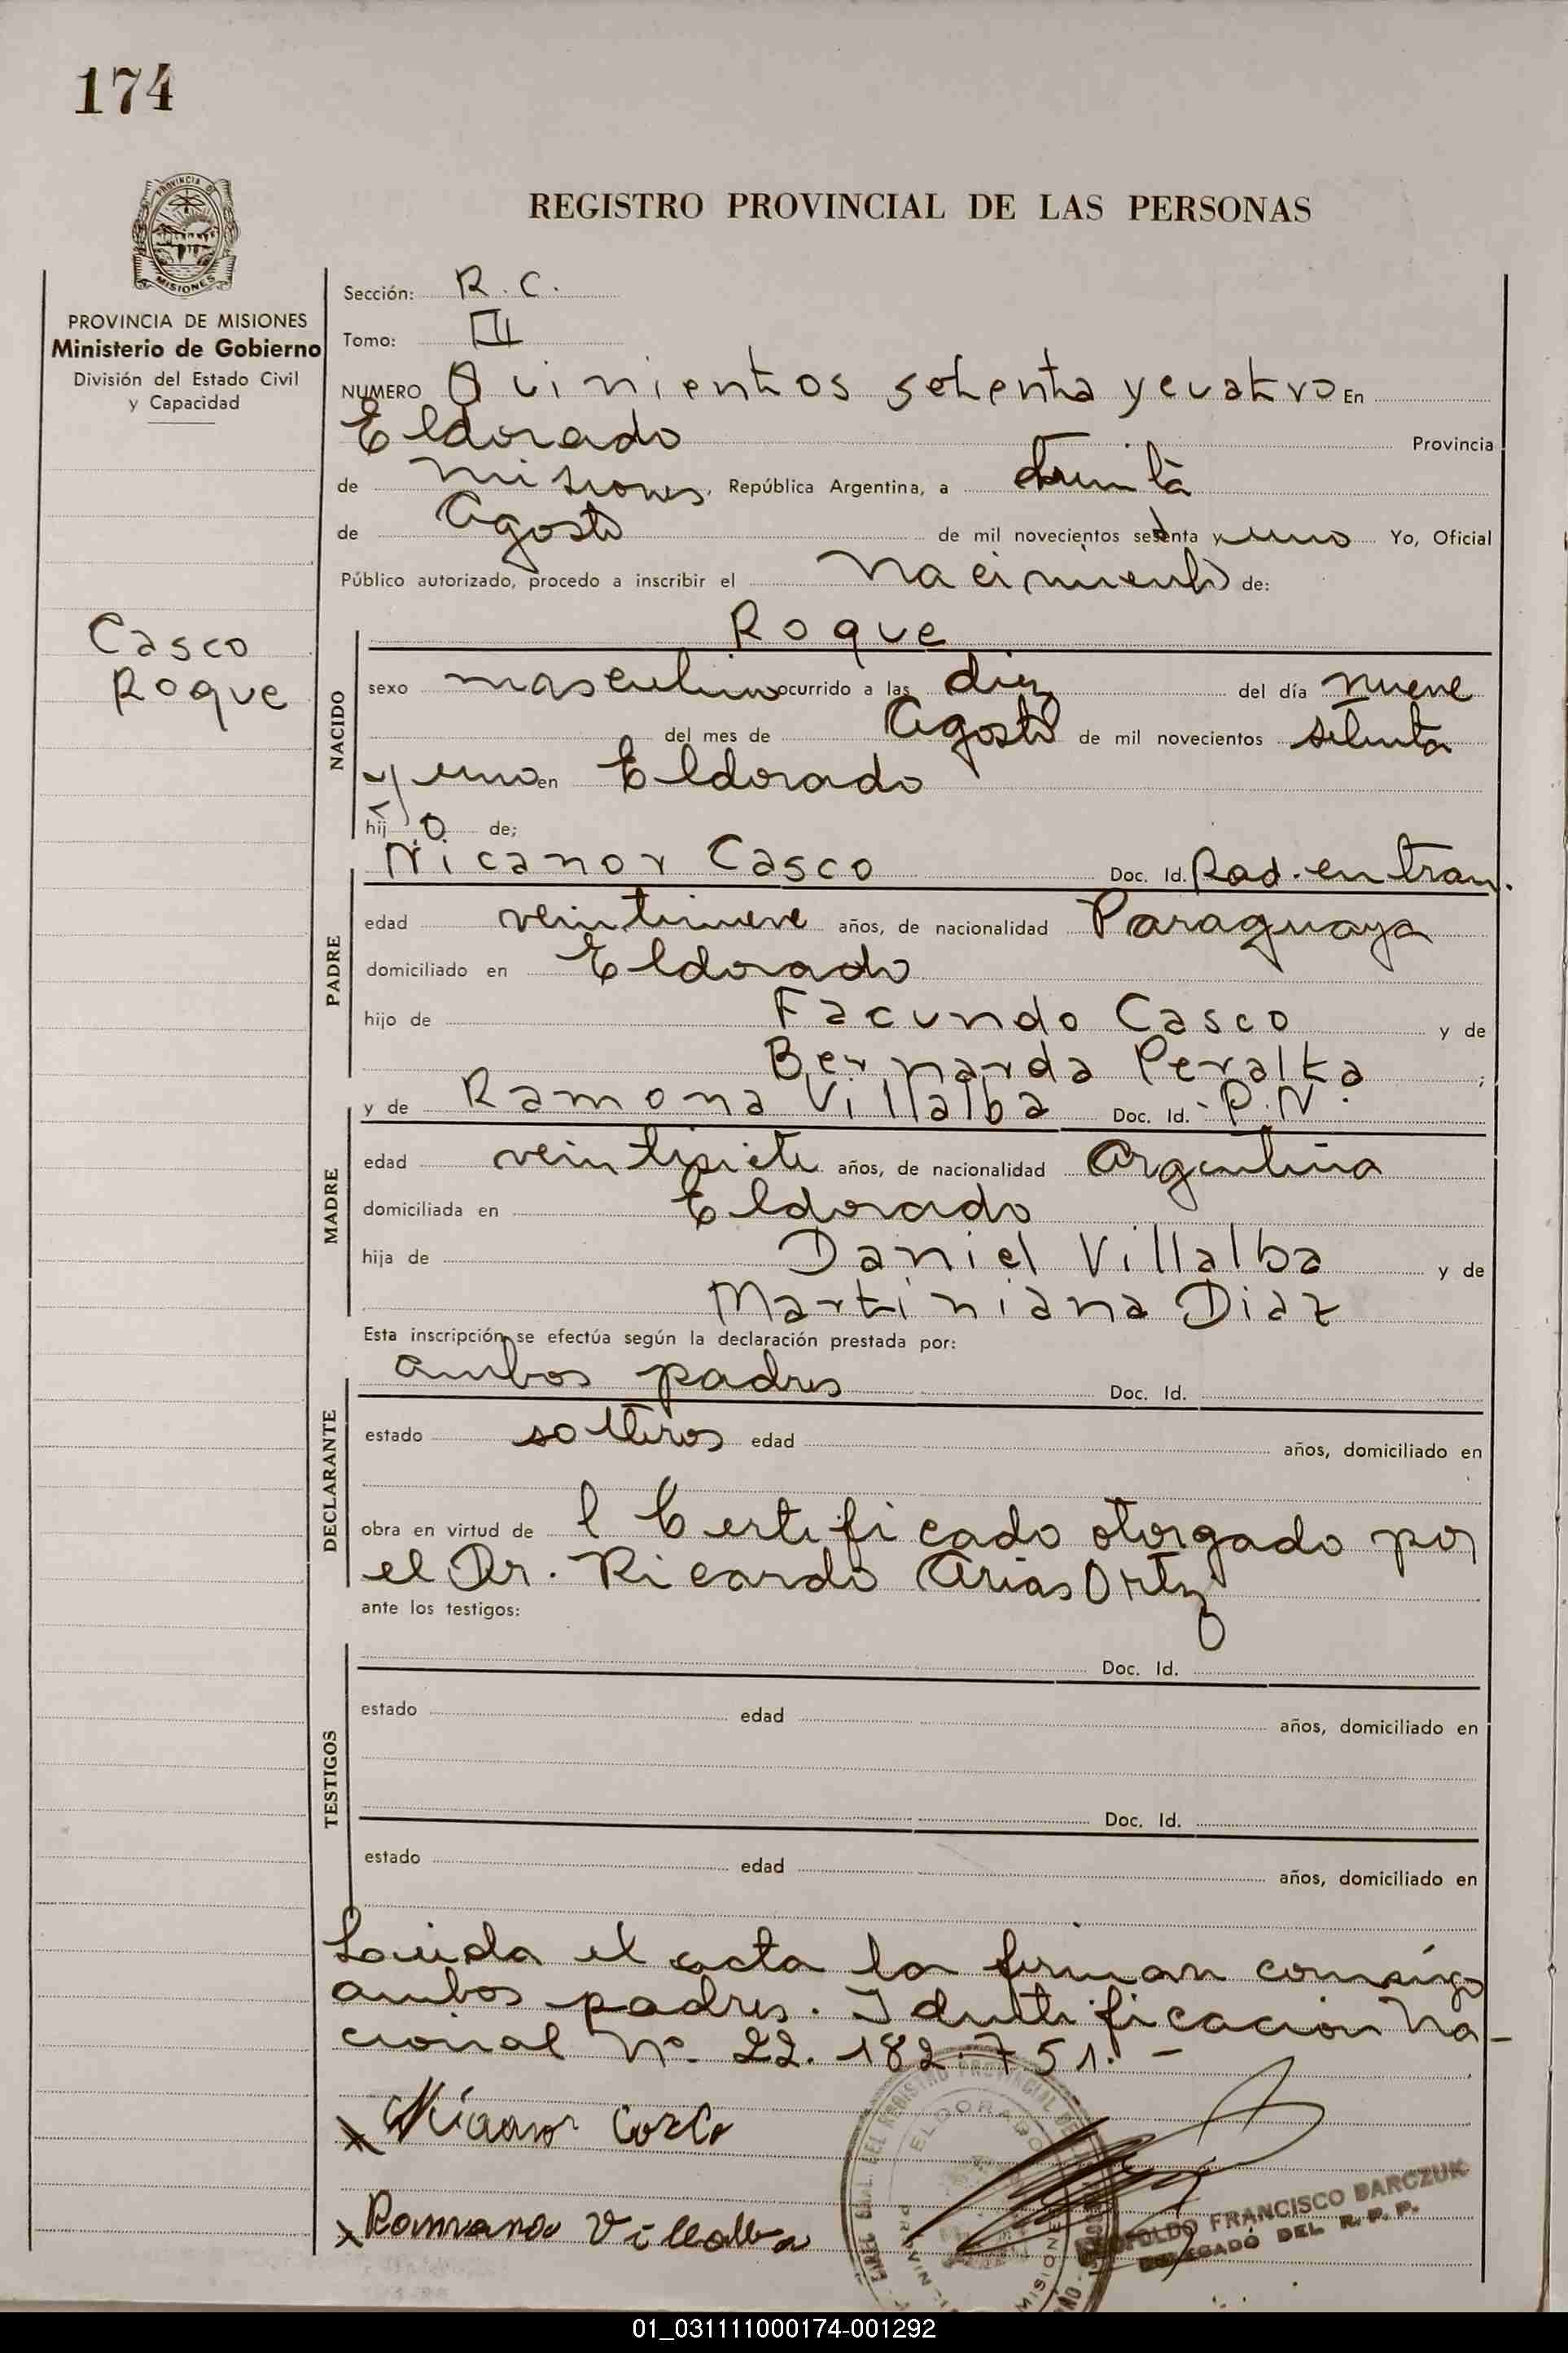 174
REGISTRO PROVINCIAL DE LAS PERSONAS
PROVINCIA DE MISIONES
Ministerio de Gobierno
División del Estado Civil
y Capacidad
Casco
Roque
Sección: R. C.
Tomo: III
NUMERO Quinientos setenta y cuatro En
Eldorado Provincia
de Misiones, República Argentina, a treinta
de Agosto de mil novecientos setenta y uno Yo, Oficial
Público autorizado, procedo a inscribir el Nacimiento de:
NACIDO
Roque
sexo masculino ocurrido a las diez del día nueve
del mes de Agosto de mil novecientos setenta
y uno en Eldorado
hij o de;
PADRE
Nicanor Casco Doc. Id. Rad. en tram.
edad veintinueve años, de nacionalidad Paraguaya
domiciliado en Eldorado
hijo de Facundo Casco y de
Bernarda Peralta ;
MADRE
y de Ramona Villalba Doc. Id. P. N.
edad veintisiete años, de nacionalidad Argentina
domiciliada en Eldorado
hija de Daniel Villalba y de
Martiniana Diaz
Esta inscripción se efectúa según la declaración prestada por:
DECLARANTE
ambos padres Doc. Id.
estado solteros edad años, domiciliado en
obra en virtud de l Certificado otorgado por
el Dr. Ricardo Arias Ortiz
ante los testigos:
TESTIGOS
Doc. Id.
estado edad años, domiciliado en
Doc. Id.
estado edad años, domiciliado en
Leida el acta la firman comsigo
ambos padres. Identificacion Na-
cional Nº 22.182.751. -
x Nicanor Casco
x Ramona Villalba
ELDORADO
LEOPOLDO FRANCISCO BARCZUK
DELEGADO DEL R. P. P.
01_031111000174-001292